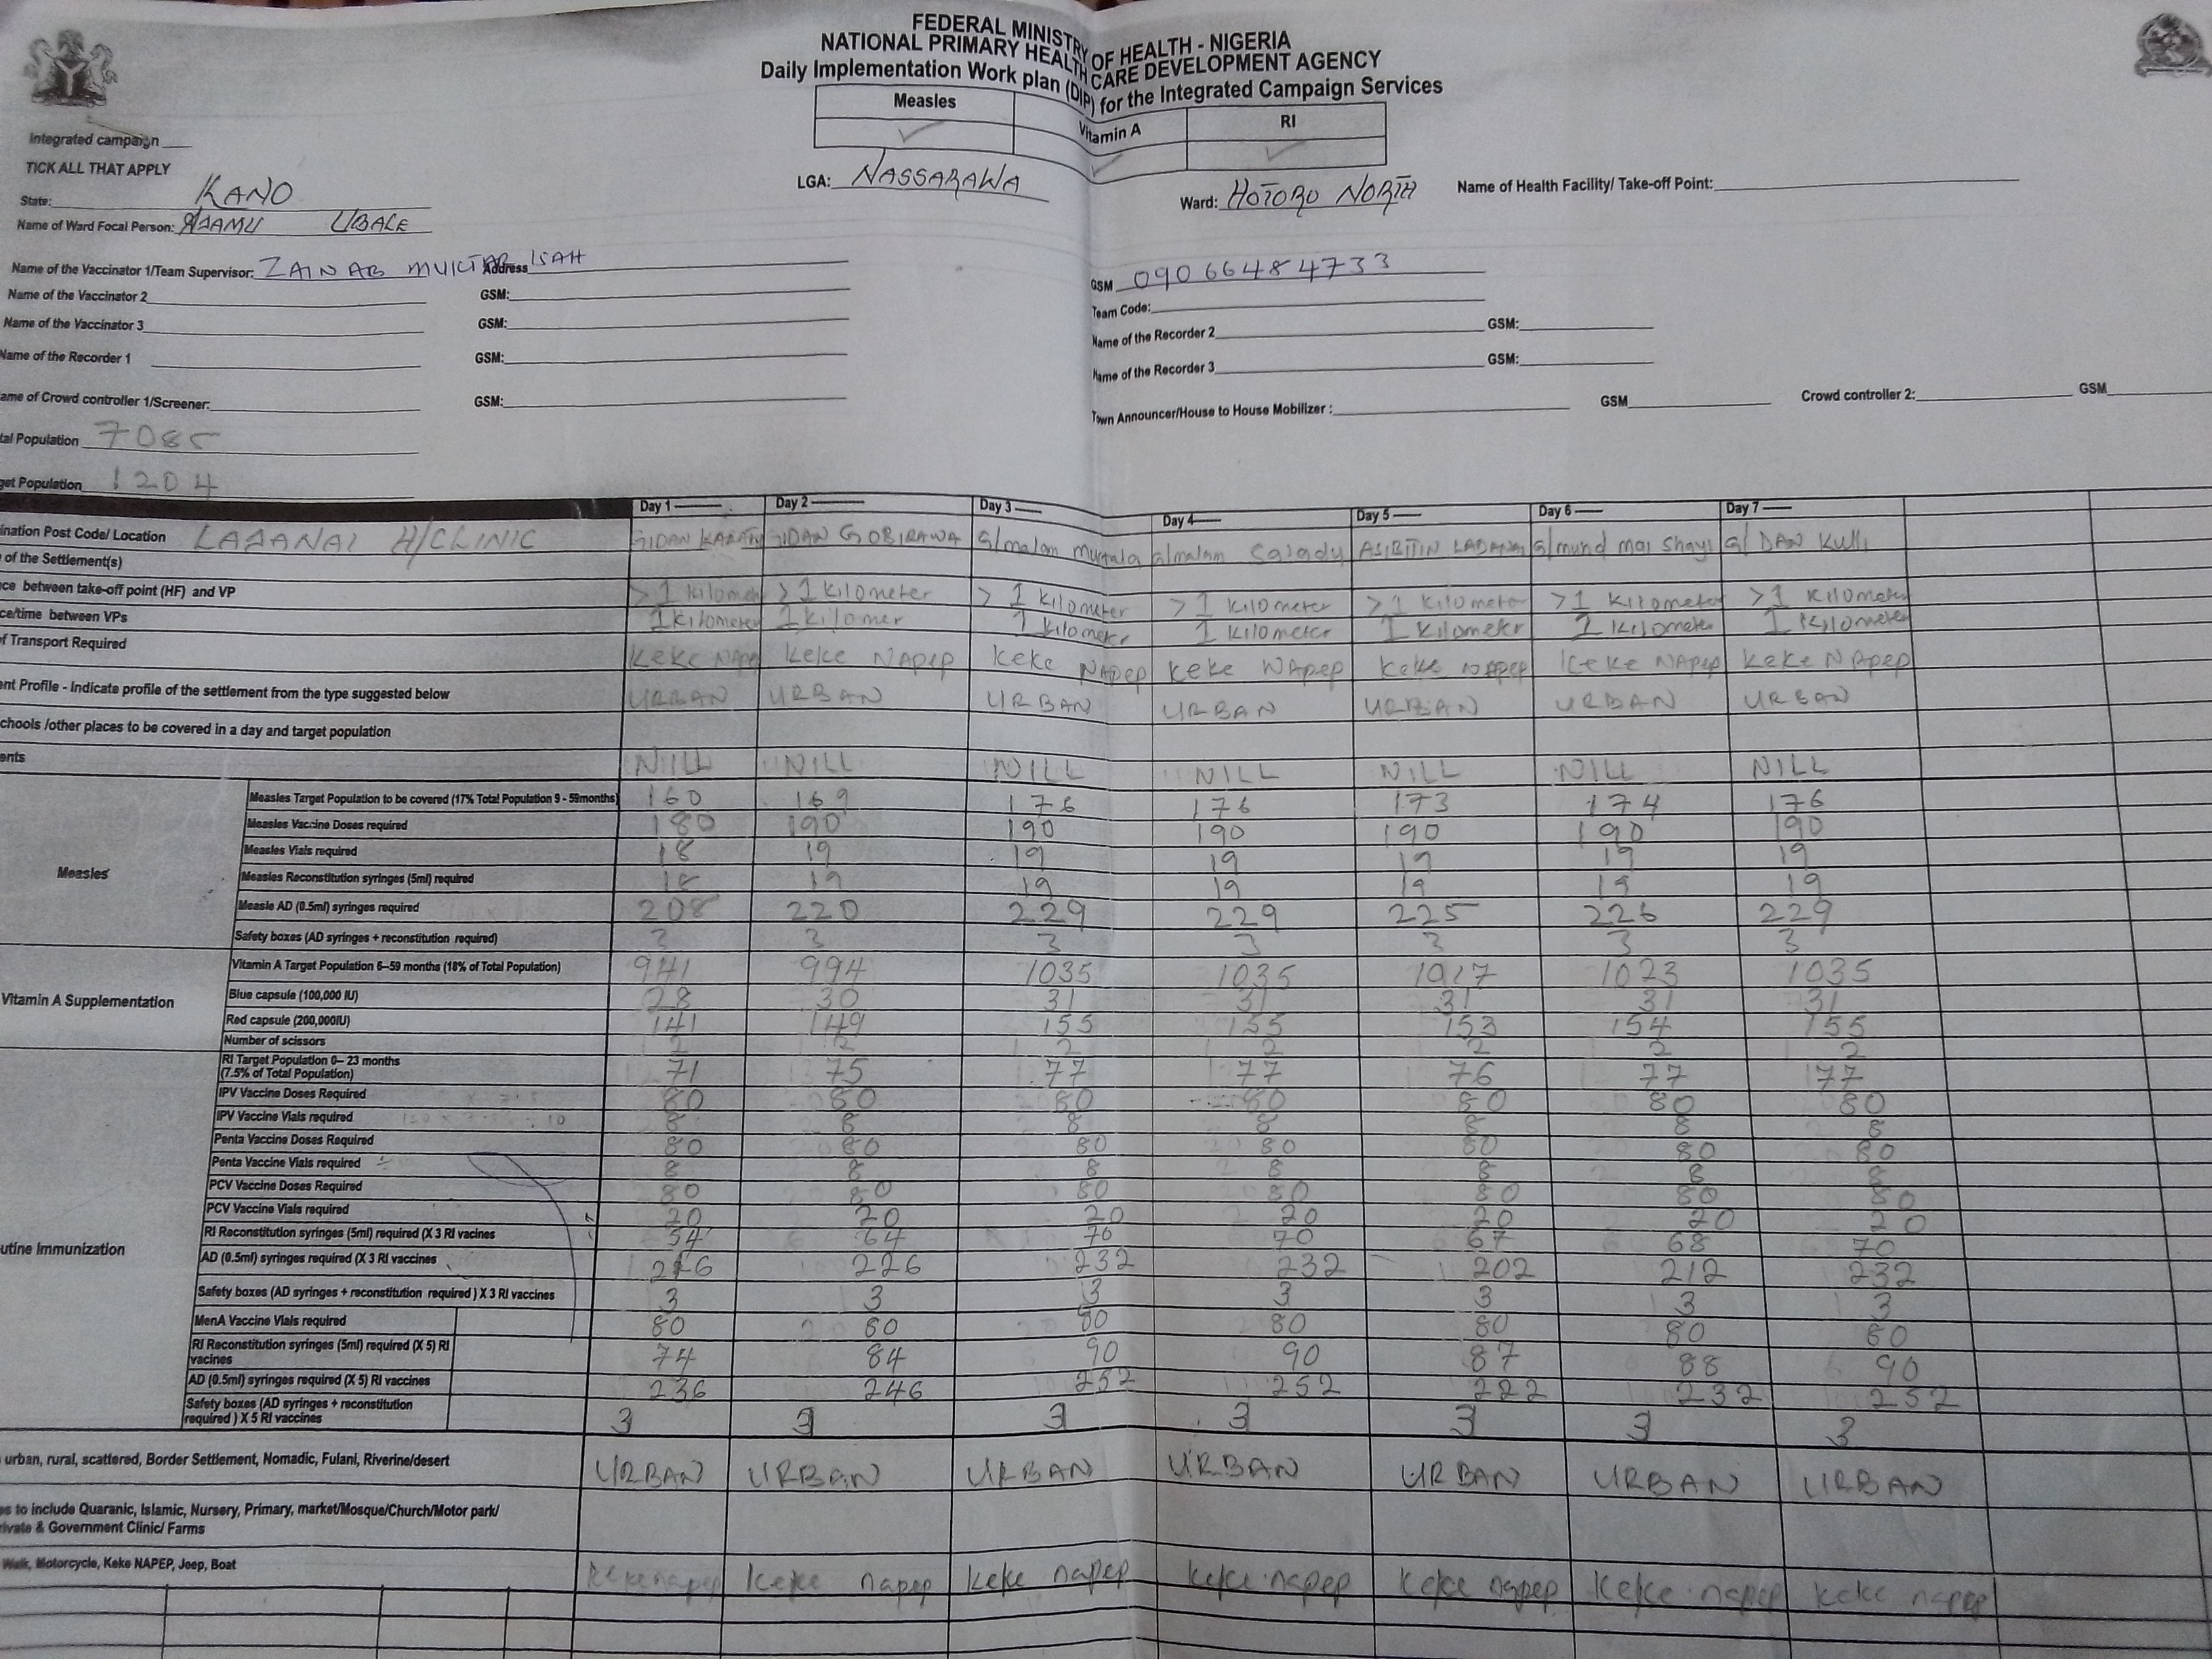 FEDERAL MINISTRY OF HEALTH - NIGERIA
NATIONAL PRIMARY HEALTH CARE DEVELOPMENT AGENCY
Daily Implementation Work plan (DIP) for the Integrated Campaign Services
Measles Vitamin A RI
Integrated campaign
TICK ALL THAT APPLY
State: KANO LGA: NASSARAWA Ward: HOTORO NORTH Name of Health Facility/ Take-off Point:
Name of Ward Focal Person: ADAMU UBALE
Name of the Vaccinator 1/Team Supervisor: ZAINAB MUKTAR ISAH Address GSM 09066484733
Name of the Vaccinator 2 GSM: Team Code:
Name of the Vaccinator 3 GSM: Name of the Recorder 2 GSM:
Name of the Recorder 1 GSM: Name of the Recorder 3 GSM:
ame of Crowd controller 1/Screener: GSM: Town Announcer/House to House Mobilizer : GSM Crowd controller 2: GSM
tal Population 7085
get Population 1204
Day 1 Day 2 Day 3 Day 4 Day 5 Day 6 Day 7
ination Post Code/ Location LADANAI H/CLINIC
of the Settlement(s) GIDAN GIDAN GOBIRAWA G/malam murtala G/malam ASIBITIN G/mund mai Shayi G/ DAN Kulli
ce between take-off point (HF) and VP >1 Kilometer >1 Kilometer >1 Kilometer >1 Kilometer >1 Kilometer >1 Kilometer >1 Kilometer
ce/time between VPs 1 Kilometer 1 Kilomer 1 Kilometer 1 Kilometer 1 Kilometer 1 Kilometer 1 Kilometer
f Transport Required KeKe NApep KeKe NApep KeKe NApep KeKe NApep KeKe NApep KeKe NApep KeKe NApep
ent Profile - Indicate profile of the settlement from the type suggested below URBAN URBAN URBAN URBAN URBAN URBAN URBAN
chools /other places to be covered in a day and target population
ents NILL NILL NILL NILL NILL NILL NILL
Measles
Measles Target Population to be covered (17% Total Population 9 - 59months) 160 169 176 176 173 174 176
Measles Vaccine Doses required 180 190 190 190 190 190 190
Measles Vials required 18 19 19 19 19 19 19
Measles Reconstitution syringes (5ml) required 18 19 19 19 19 19 19
Measle AD (0.5ml) syringes required 208 220 229 229 225 226 229
Safety boxes (AD syringes + reconstitution required) 3 3 3 3 3 3 3
Vitamin A Supplementation
Vitamin A Target Population 6–59 months (18% of Total Population) 941 994 1035 1035 1017 1023 1035
Blue capsule (100,000 IU) 28 30 31 31 31 31 31
Red capsule (200,000IU) 141 149 155 155 153 154 155
Number of scissors 2 2 2 2 2 2 2
utine Immunization
RI Target Population 0– 23 months
(7.5% of Total Population) 71 75 77 77 76 77 77
IPV Vaccine Doses Required 80 80 80 80 80 80 80
IPV Vaccine Vials required 8 8 8 8 8 8 8
Penta Vaccine Doses Required 80 80 80 80 80 80 80
Penta Vaccine Vials required 8 8 8 8 8 8 8
PCV Vaccine Doses Required 80 80 80 80 80 80 80
PCV Vaccine Vials required 20 20 20 20 20 20 20
RI Reconstitution syringes (5ml) required (X 3 RI vacines 54 64 70 70 67 68 70
AD (0.5ml) syringes required (X 3 RI vaccines 216 226 232 232 202 212 232
Safety boxes (AD syringes + reconstitution required ) X 3 RI vaccines 3 3 3 3 3 3 3
MenA Vaccine Vials required 80 80 80 80 80 80 80
RI Reconstitution syringes (5ml) required (X 5) RI
vacines 74 84 90 90 87 88 90
AD (0.5ml) syringes required (X 5) RI vaccines 236 246 252 252 222 232 252
Safety boxes (AD syringes + reconstitution
required ) X 5 RI vaccines 3 3 3 3 3 3 3
urban, rural, scattered, Border Settlement, Nomadic, Fulani, Riverine/desert URBAN URBAN URBAN URBAN URBAN URBAN URBAN
es to include Quaranic, Islamic, Nursery, Primary, market/Mosque/Church/Motor park/
rivate & Government Clinic/ Farms
Walk, Motorcycle, Keke NAPEP, Jeep, Boat Keke napep Keke napep Keke napep Keke napep Keke napep Keke napep Keke napep